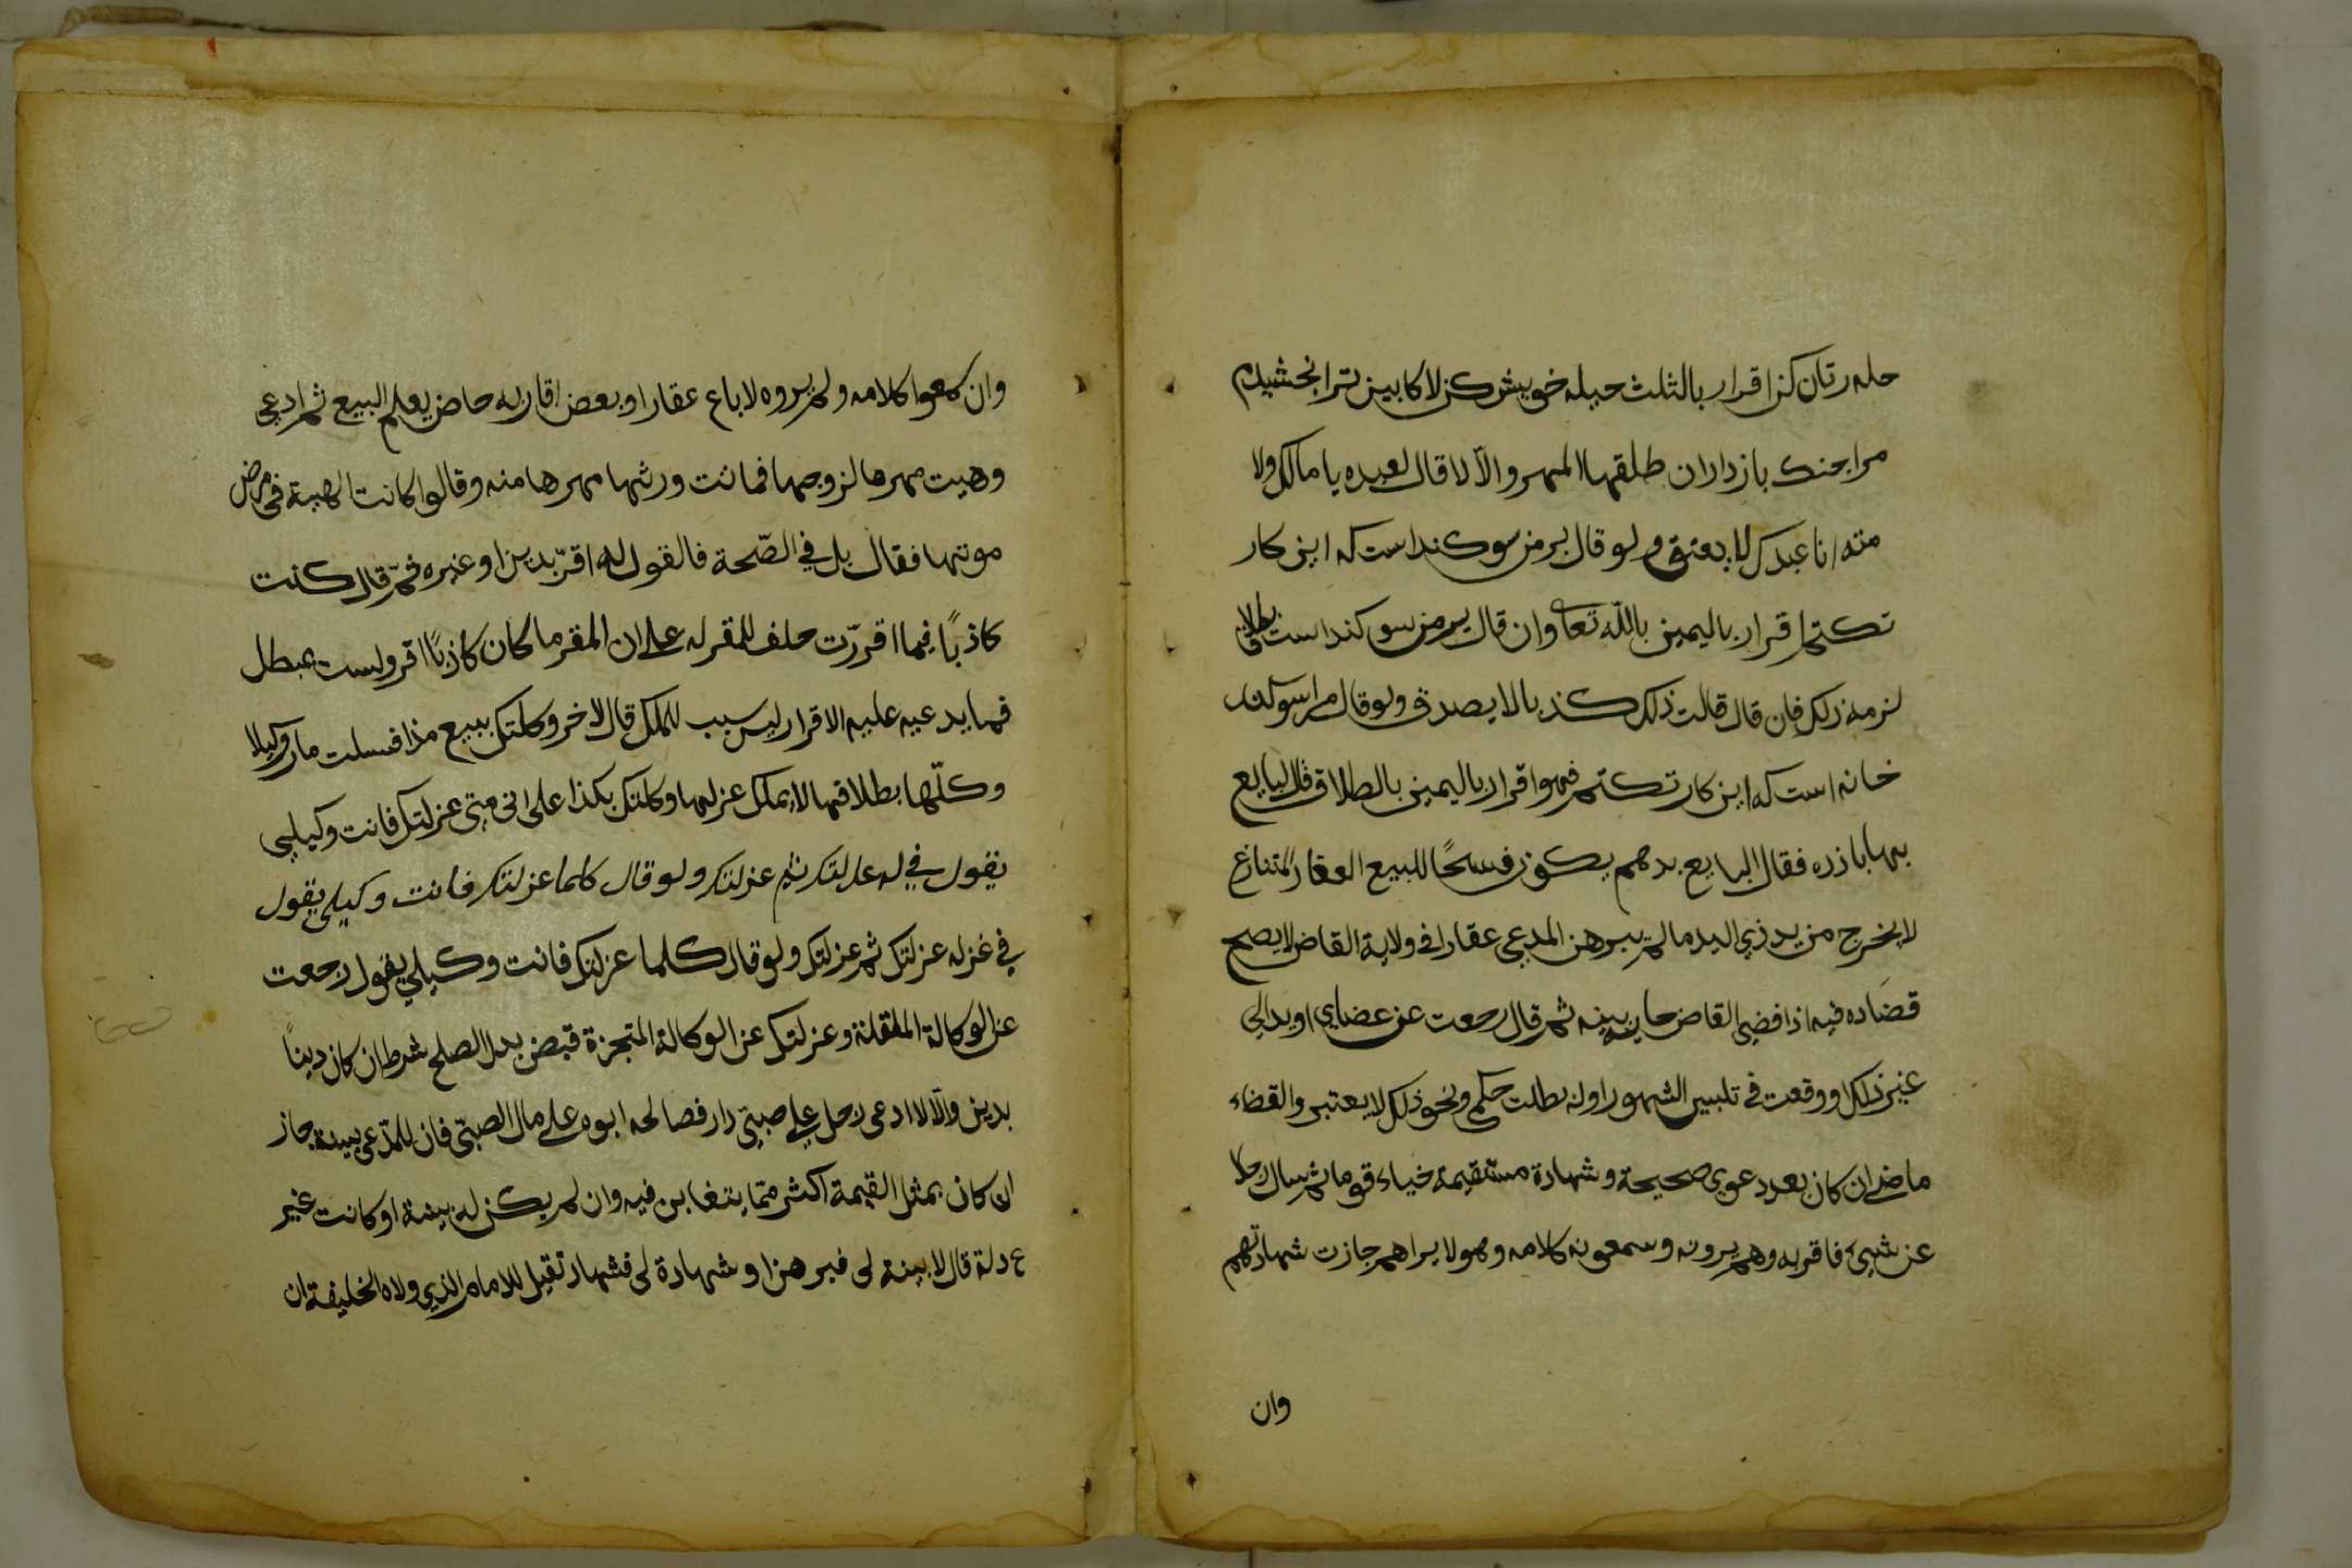 حله رتان كن اقرار بالثلث حيله خويش كن لا كابين ترا بخشيدم
مرا جنك بازداران طلقها المهر والّا لا قال لعبده يا مالكي ولا
منه انا عبدك لا يعتق ولو قال بر من سوكند است كه اين كار
نكنم اقرار باليمين بالله تعا وان قال بر من سوكند است بطلاق
لزمه ذلك فان قال قالت ذلك كذبا لا يصدق ولو قال مرا سوكند
خانه است كه اين كار نكنم فهو اقرار باليمين بالطلاق قال للبايع
بها بازده فقال البايع بدهم يكون فسخًا للبيع العقار المتنازع
لا يخرج من يد ذي اليد ما لم يبرهن المدعي عقارا في ولاية القاض لا يصح
قضاده فيه اذا قضى القاض حاربينه ثم قال رجعت عن عضاي او بدا لي
غير ذلك او وقعت في تلبيس الشهود اوله بطلت حكمي ونحو ذلك لا يعتبر والقضاء
ماضي ان كان بعد دعوي صحيحة وشهادة مستقيمة خياء قوما ثم سال رجلا
عن شيئ فاقر به وهم يرونه وسمعونه كلامه وهو لا يراهم جازت شهادتهم
وان
وان سمعوا كلامه ولم يروه لا باع عقارا وبعض اقاربه حاضر يعلم البيع ثم ادعي
وهبت مهرها لزوجها فماتت ورثها مهرها منه وقالوا كانت الهبة في مرض
موتها فقال بل في الصّحة فالقول له اقرّ بدين او غيره ثمّ قال كنت
كاذبًا فيما اقررت حلف للمقر له على ان المقر ما كان كاذبًا اقر ولست بمبطل
فيما يدعيه عليه الاقرار ليس بسبب للملك قال لاخر وكلتك ببيع هذا فسلت مار وكيلا
وكلّها بطلاقها لا يملك عزلها وكلتك بكذا على اني متى عزلتك فانت وكيلي
يقول في له عدلتك ثم عزلتك ولو قال كلما عزلتك فانت وكيلي يقول
في غزله عزلتك ثم عزلتك ولو قال كلما عزلتك فانت وكيلي يقول رجعت
عن الوكالة الملقلنة وعزلتك عن الوكالة المتجزة قبض بدل الصلح شرط ان كان دينًا
بدين والّا لا ادعى رجل على صبيّ دار فصالحه ابوه على مال الصبيّ فان للمدّعي بينة جاز
ان كان بمثل القيمة اكثر ممّا يتغابن فيه وان لم يكن له بينة او كانت غير
ع دلة قال لا بينة لى فبرهن او شهادة لى فشهاد تقبل للامام الذي ولاه الخليفة ان